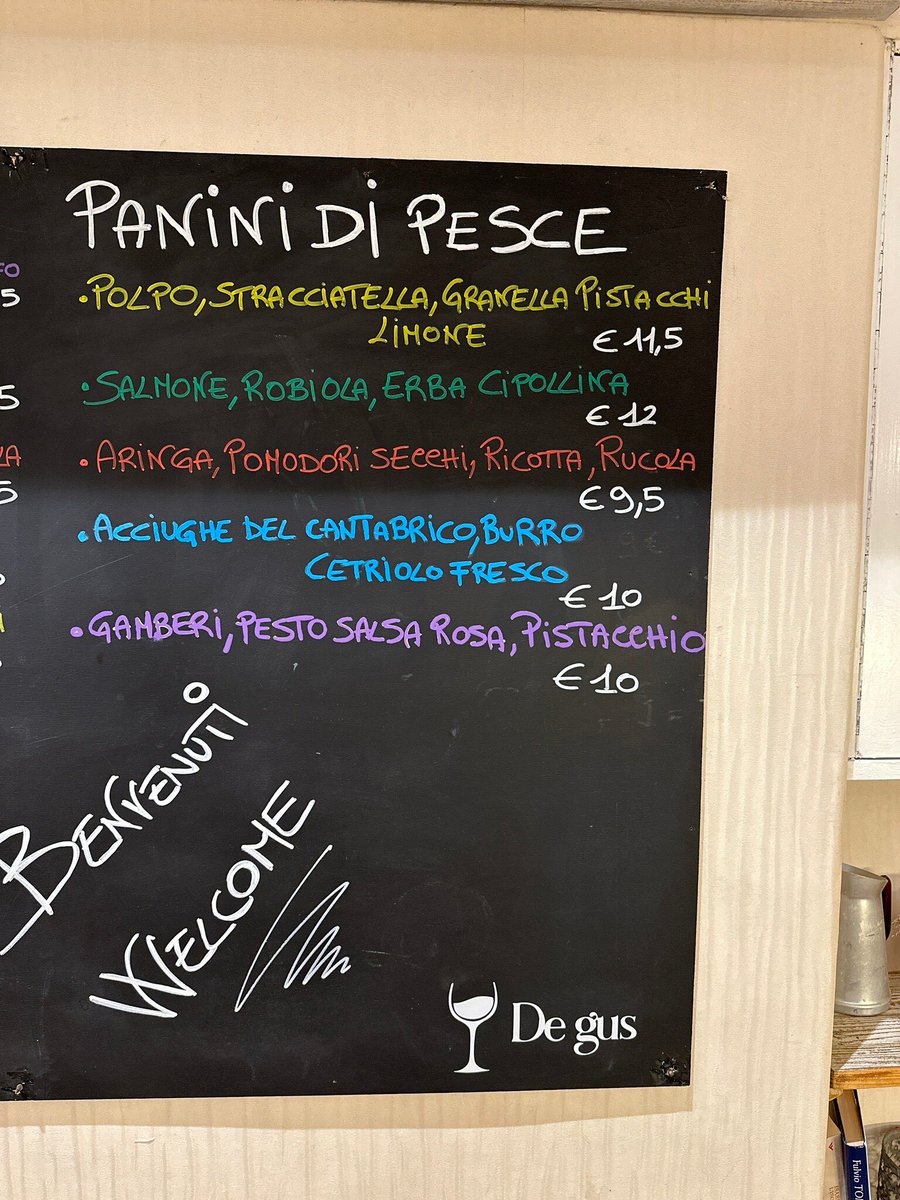 PANINI DI PESCE
·POLPO, STRACCIATELLA, GRANELLA PISTACCHI
LIMONE
€ 11,5
·SALMONE, ROBIOLA, ERBA CIPOLLINA
€ 12
·ARINGA, POMODORI SECCHI, RICOTTA, RUCOLA
€ 9,5
·ACCIUGHE DEL CANTABRICO, BURRO
CETRIOLO FRESCO
€ 10
·GAMBERI, PESTO SALSA ROSA, PISTACCHIO
€ 10
BENVENUTI
WELCOME
De gus
Fulvio